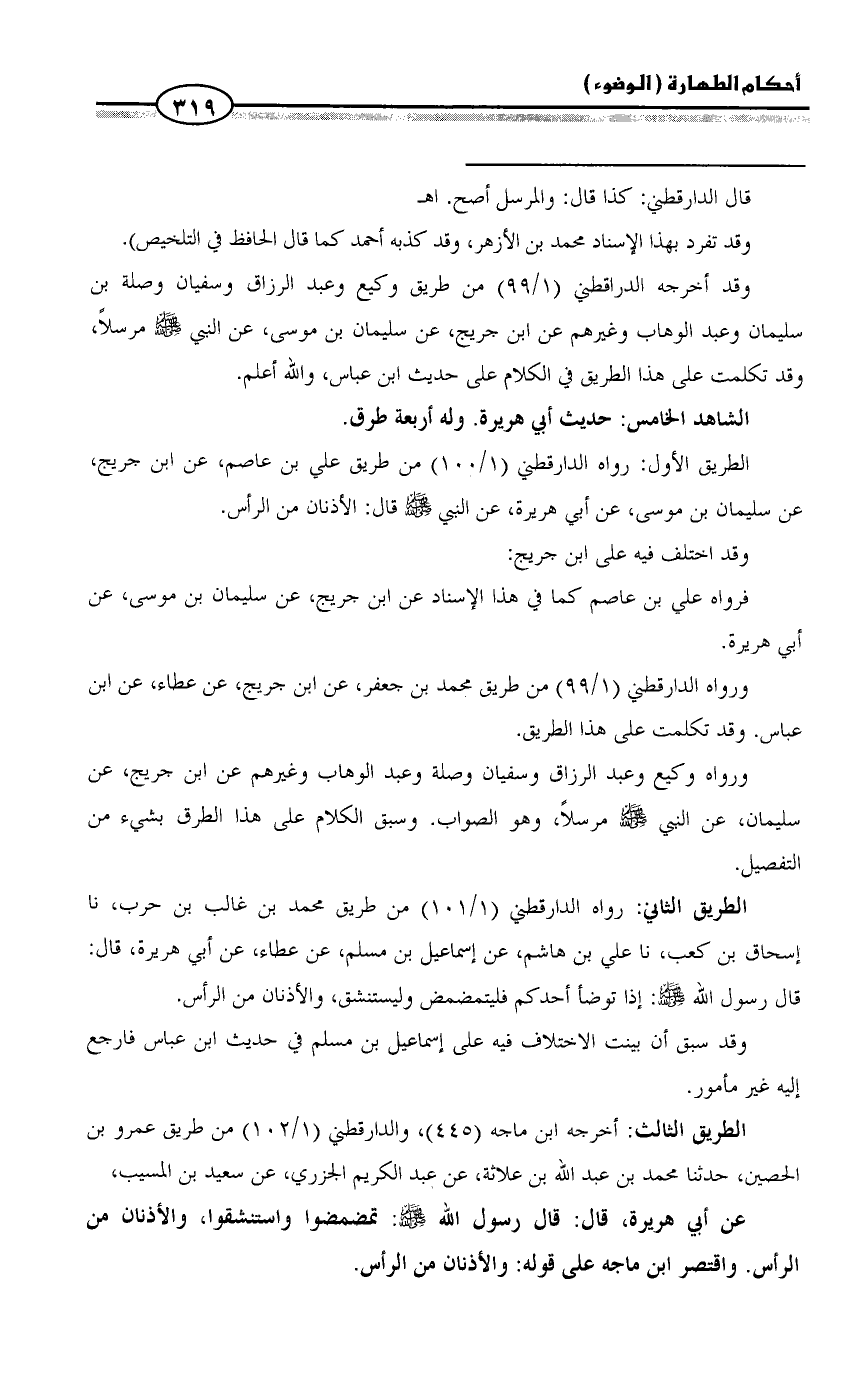 أحكام الطهارة (الوضوء)
٣١٩
قال الدارقطني: كذا قال: والمرسل أصح. اهـ
وقد تفرد بهذا الإسناد محمد بن الأزهر، وقد كذبه أحمد كما قال الحافظ في التلخيص).
وقد أخرجه الدراقطني (٩٩/١) من طريق وكيع وعبد الرزاق وسفيان وصلة بن
سليمان وعبد الوهاب وغيرهم عن ابن جريج، عن سليمان بن موسى، عن النبي ﷺ مرسلاً،
وقد تكلمت على هذا الطريق في الكلام على حديث ابن عباس، والله أعلم.
الشاهد الخامس: حديث أبي هريرة. وله أربعة طرق.
الطريق الأول: رواه الدارقطني (١٠٠/١) من طريق علي بن عاصم، عن ابن جريج،
عن سليمان بن موسى، عن أبي هريرة، عن النبي ﷺ قال: الأذنان من الرأس.
وقد اختلف فيه على ابن جريج:
فرواه علي بن عاصم كما في هذا الإسناد عن ابن جريج، عن سليمان بن موسى، عن
أبي هريرة.
ورواه الدارقطني (٩٩/١) من طريق محمد بن جعفر، عن ابن جريج، عن عطاء، عن ابن
عباس. وقد تكلمت على هذا الطريق.
ورواه وكيع وعبد الرزاق وسفيان وصلة وعبد الوهاب وغيرهم عن ابن جريج، عن
سليمان، عن النبي ﷺ مرسلاً، وهو الصواب. وسبق الكلام على هذا الطرق بشيء من
التفصيل.
الطريق الثاني: رواه الدارقطني (١٠١/١) من طريق محمد بن غالب بن حرب، نا
إسحاق بن كعب، نا علي بن هاشم، عن إسماعيل بن مسلم، عن عطاء، عن أبي هريرة، قال:
قال رسول الله ﷺ: إذا توضأ أحدكم فليتمضمض وليستنشق، والأذنان من الرأس.
وقد سبق أن بينت الاختلاف فيه على إسماعيل بن مسلم في حديث ابن عباس فارجع
إليه غير مأمور.
الطريق الثالث: أخرجه ابن ماجه (٤٤٥)، والدارقطني (١٠٢/١) من طريق عمرو بن
الحصين، حدثنا محمد بن عبد الله بن علاثة، عن عبد الكريم الجزري، عن سعيد بن المسيب،
عن أبي هريرة، قال: قال رسول الله ﷺ: تمضمضوا واستنشقوا، والأذنان من
الرأس. واقتصر ابن ماجه على قوله: والأذنان من الرأس.